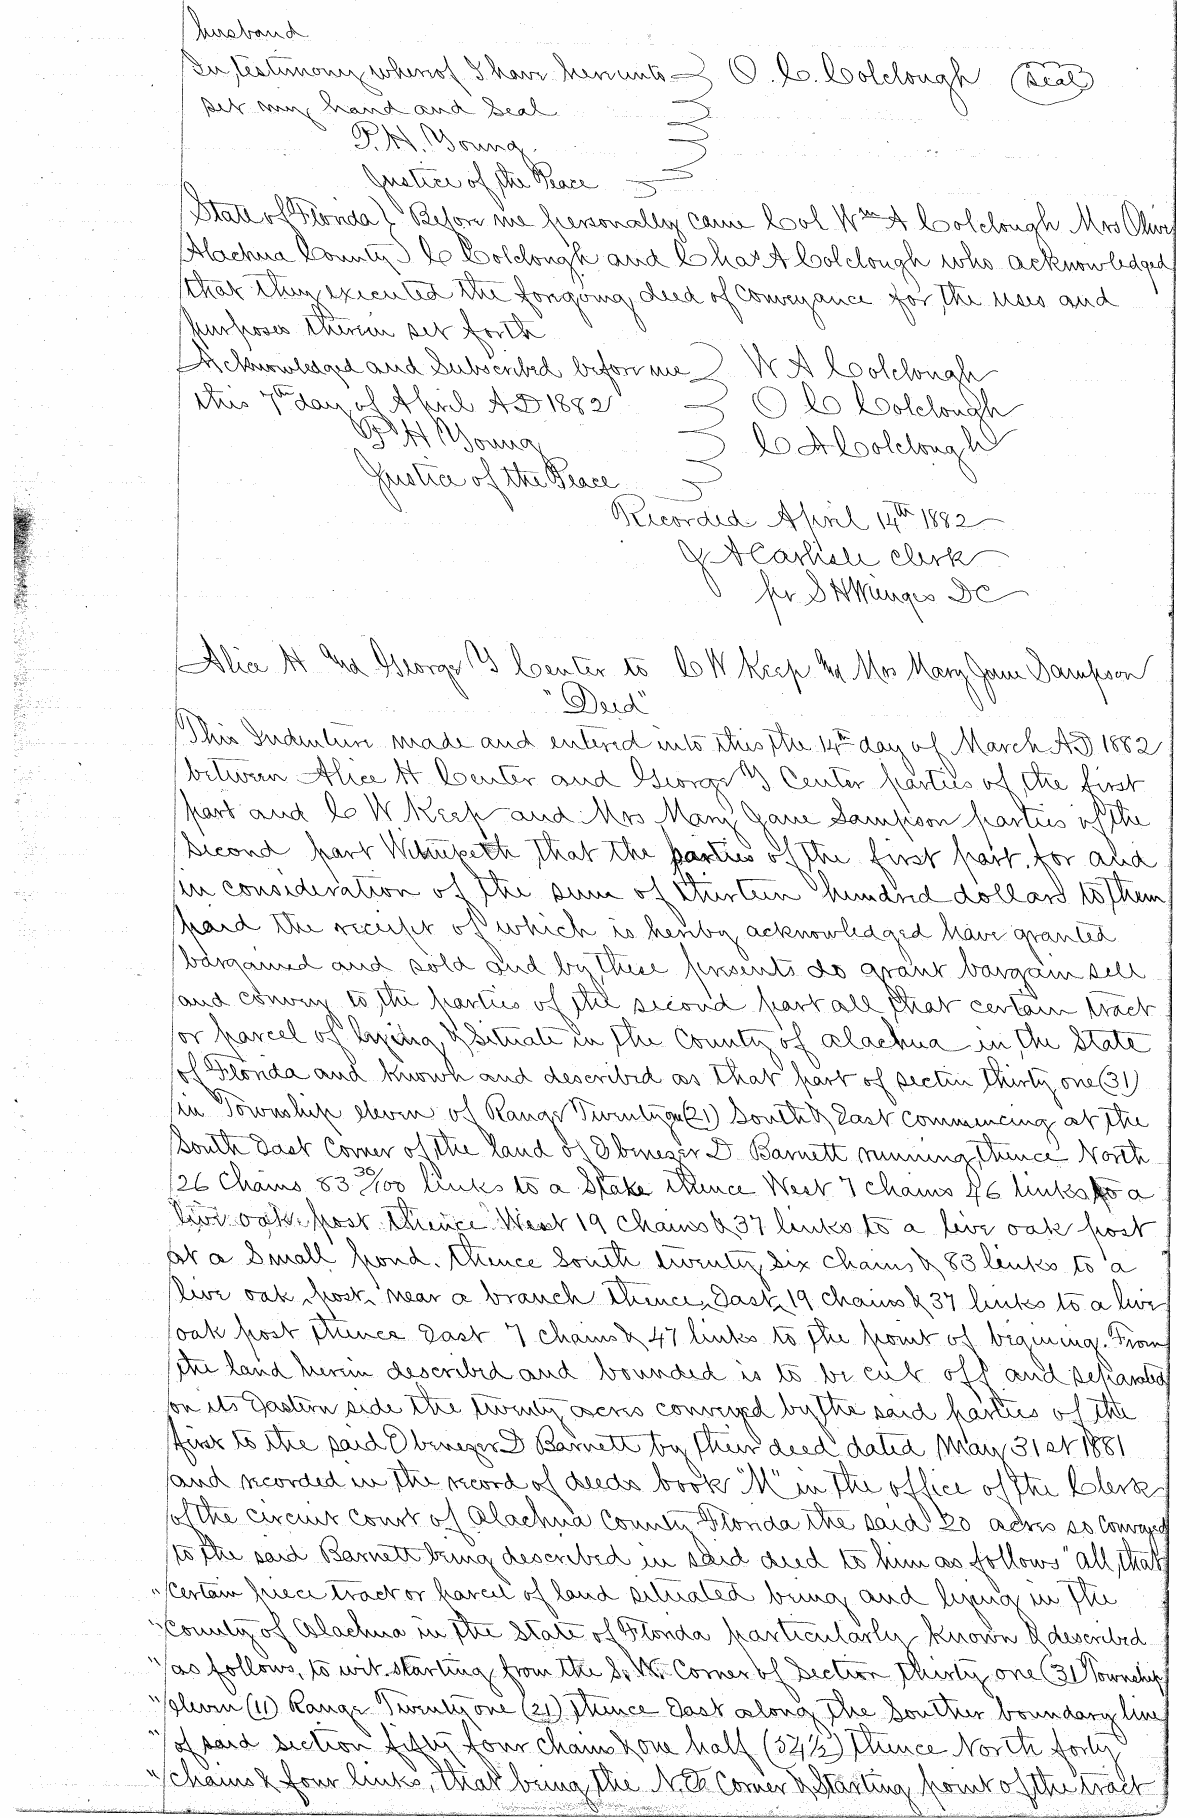 husband
In testimony whereof I have hereunto O. C. Colclough (Seal)
set my hand and Seal
P. H. Young.
Justice of the Peace
State of Florida } Before me personally came Col Wm A Colclough Mrs Olive
Alachua County } C Colclough and Chas A Colclough who acknowledged
that they executed the forgoing deed of Conveyance for the uses and
purposes therein set forth
Acknowledged and Subscribed before me W A Colclough
this 7th day of April AD 1882 O C Colclough
P H Young C A Colclough
Justice of the Peace
Recorded April 14th 1882
J A Carlisle Clerk
per S H Wienges DC
Alice H and George Y Center to C W Keep and Mrs Mary Jane Sampson
"Deed"
This Indenture made and entered into this the 14th day of March AD 1882
between Alice H Center and George Y Center parties of the first
part and C W Keep and Mrs Mary Jane Sampson parties of the
Second part Witnesseth that the parties of the first part, for and
in consideration of the sum of thirteen hundred dollars to them
paid the receipt of which is hereby acknowledged have granted
bargained and sold and by these presents do grant bargain sell
and convey to the parties of the second part all that certain tract
or parcel of lying & situate in the County of Alachua in the State
of Florida and known and described as that part of sectin thirty one (31)
in Township eleven of Range Twenty one (21) South & East commencing at the
South East Corner of the land of Ebenezer D. Barnett running thence North
26 Chains 83 30/100 links to a Stake thence West 7 chains 46 links to a
live oak post thence West 19 chains & 37 links to a live oak post
at a small pond. thence South twenty six chains & 83 links to a
live oak post near a branch thence East 19 chains & 37 links to a live
oak post thence East 7 chains & 47 links to the point of begining. From
the land herein described and bounded is to be cut off and separated
on its Eastern side the twenty acres conveyed by the said parties of the
first to the said Ebenezer D Barnett by their deed dated May 31st 1881
and recorded in the record of deeds book "M" in the office of the Clerk
of the circuit court of Alachua County Florida the said 20 acres so conveyed
to the said Barnett being described in said deed to him as follows "all that
"certain piece tract or parcel of land situated being and lying in the
"County of Alachua in the State of Florida particularly known & described
"as follows, to wit. starting from the S. W. Corner of Section thirty one (31) Township
"eleven (11) Range Twenty one (21) thence East along the Souther boundary line
"of said section fifty four chains & one half (54½) thence North forty
"chains & four links, that being the N.E. Corner & Starting point of the tract